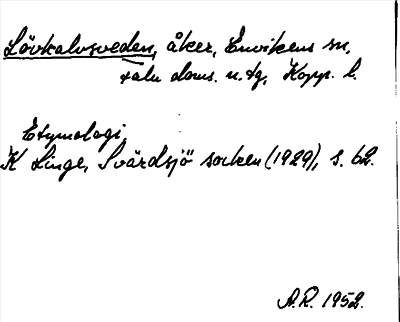 Lövkalvsveden, åker, Envikens sn,
Falu doms. n. tg, Kopp. l.
Etymologi
K Linge, Svärdsjö socken (1929), s. 62.
A.R. 1952.